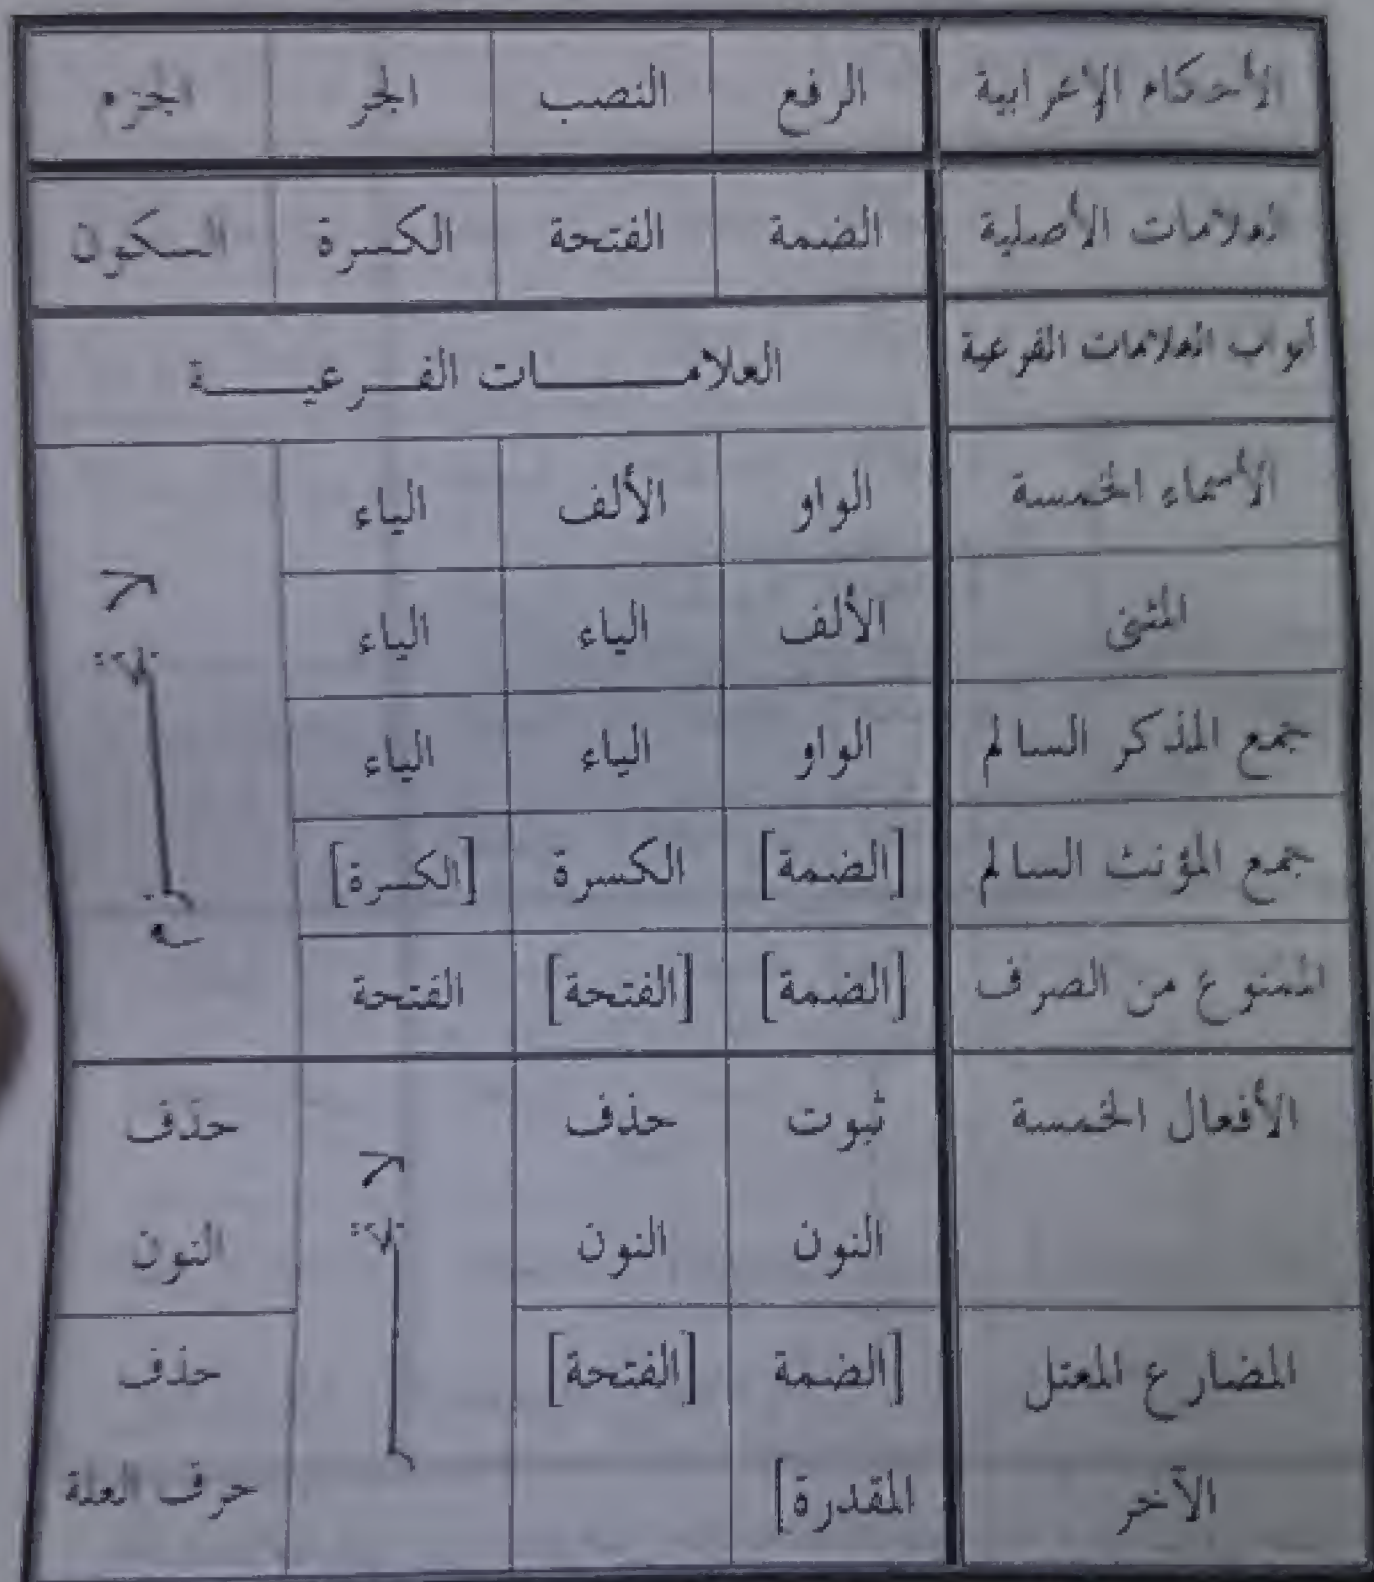 الأحكام الإعرابية الرفع النصب الجر الجزم
العلامات الأصلية الضمة الفتحة الكسرة السكون
أبواب العلامات الفرعية العلامـــــات الفـــرعيـــــة
الأسماء الخمسة الواو الألف الياء
المثنى الألف الياء الياء
جمع المذكر السالم الواو الياء الياء
جمع المؤنث السالم [الضمة] الكسرة [الكسرة]
الممنوع من الصرف [الضمة] [الفتحة] الفتحة
الأفعال الخمسة ثبوت حذف حذف
النون النون النون
المضارع المعتل [الضمة [الفتحة] حذف
الآخر المقدرة] حرف العلة